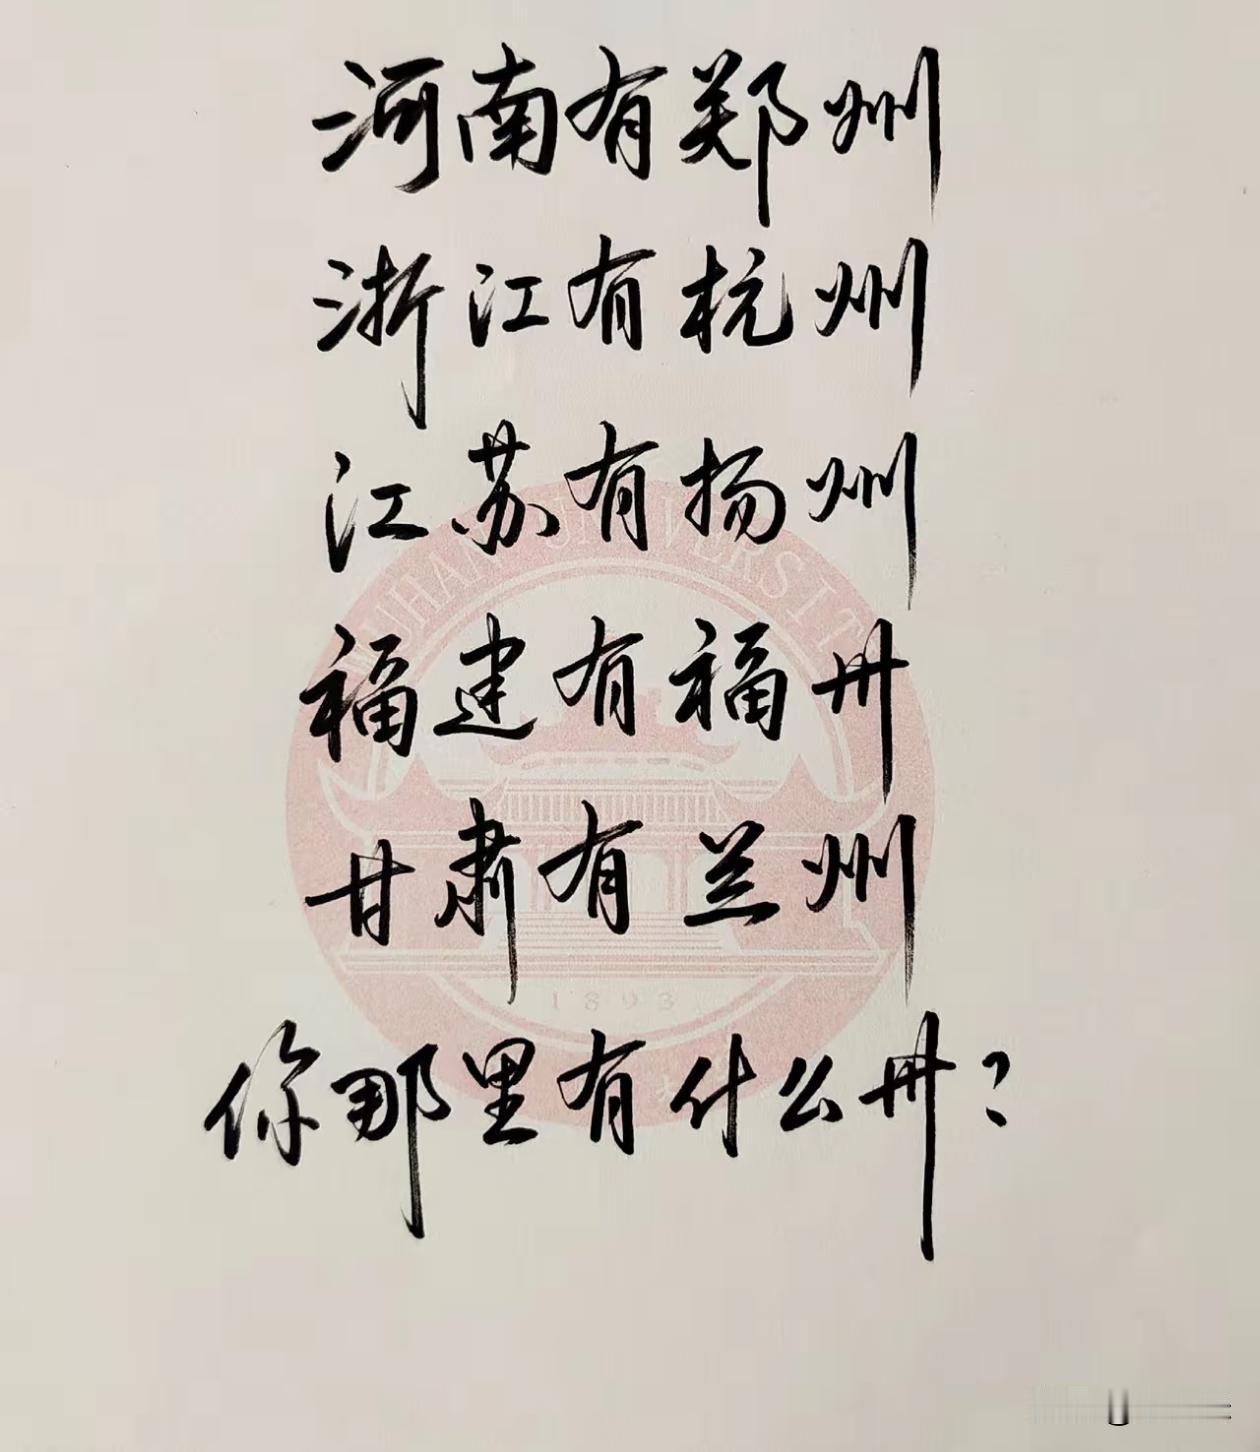 河南有郑州
浙江有杭州
江苏有扬州
WUHAN UNIVERSIT
福建有福州
甘肃有兰州
1893
你那里有什么州?